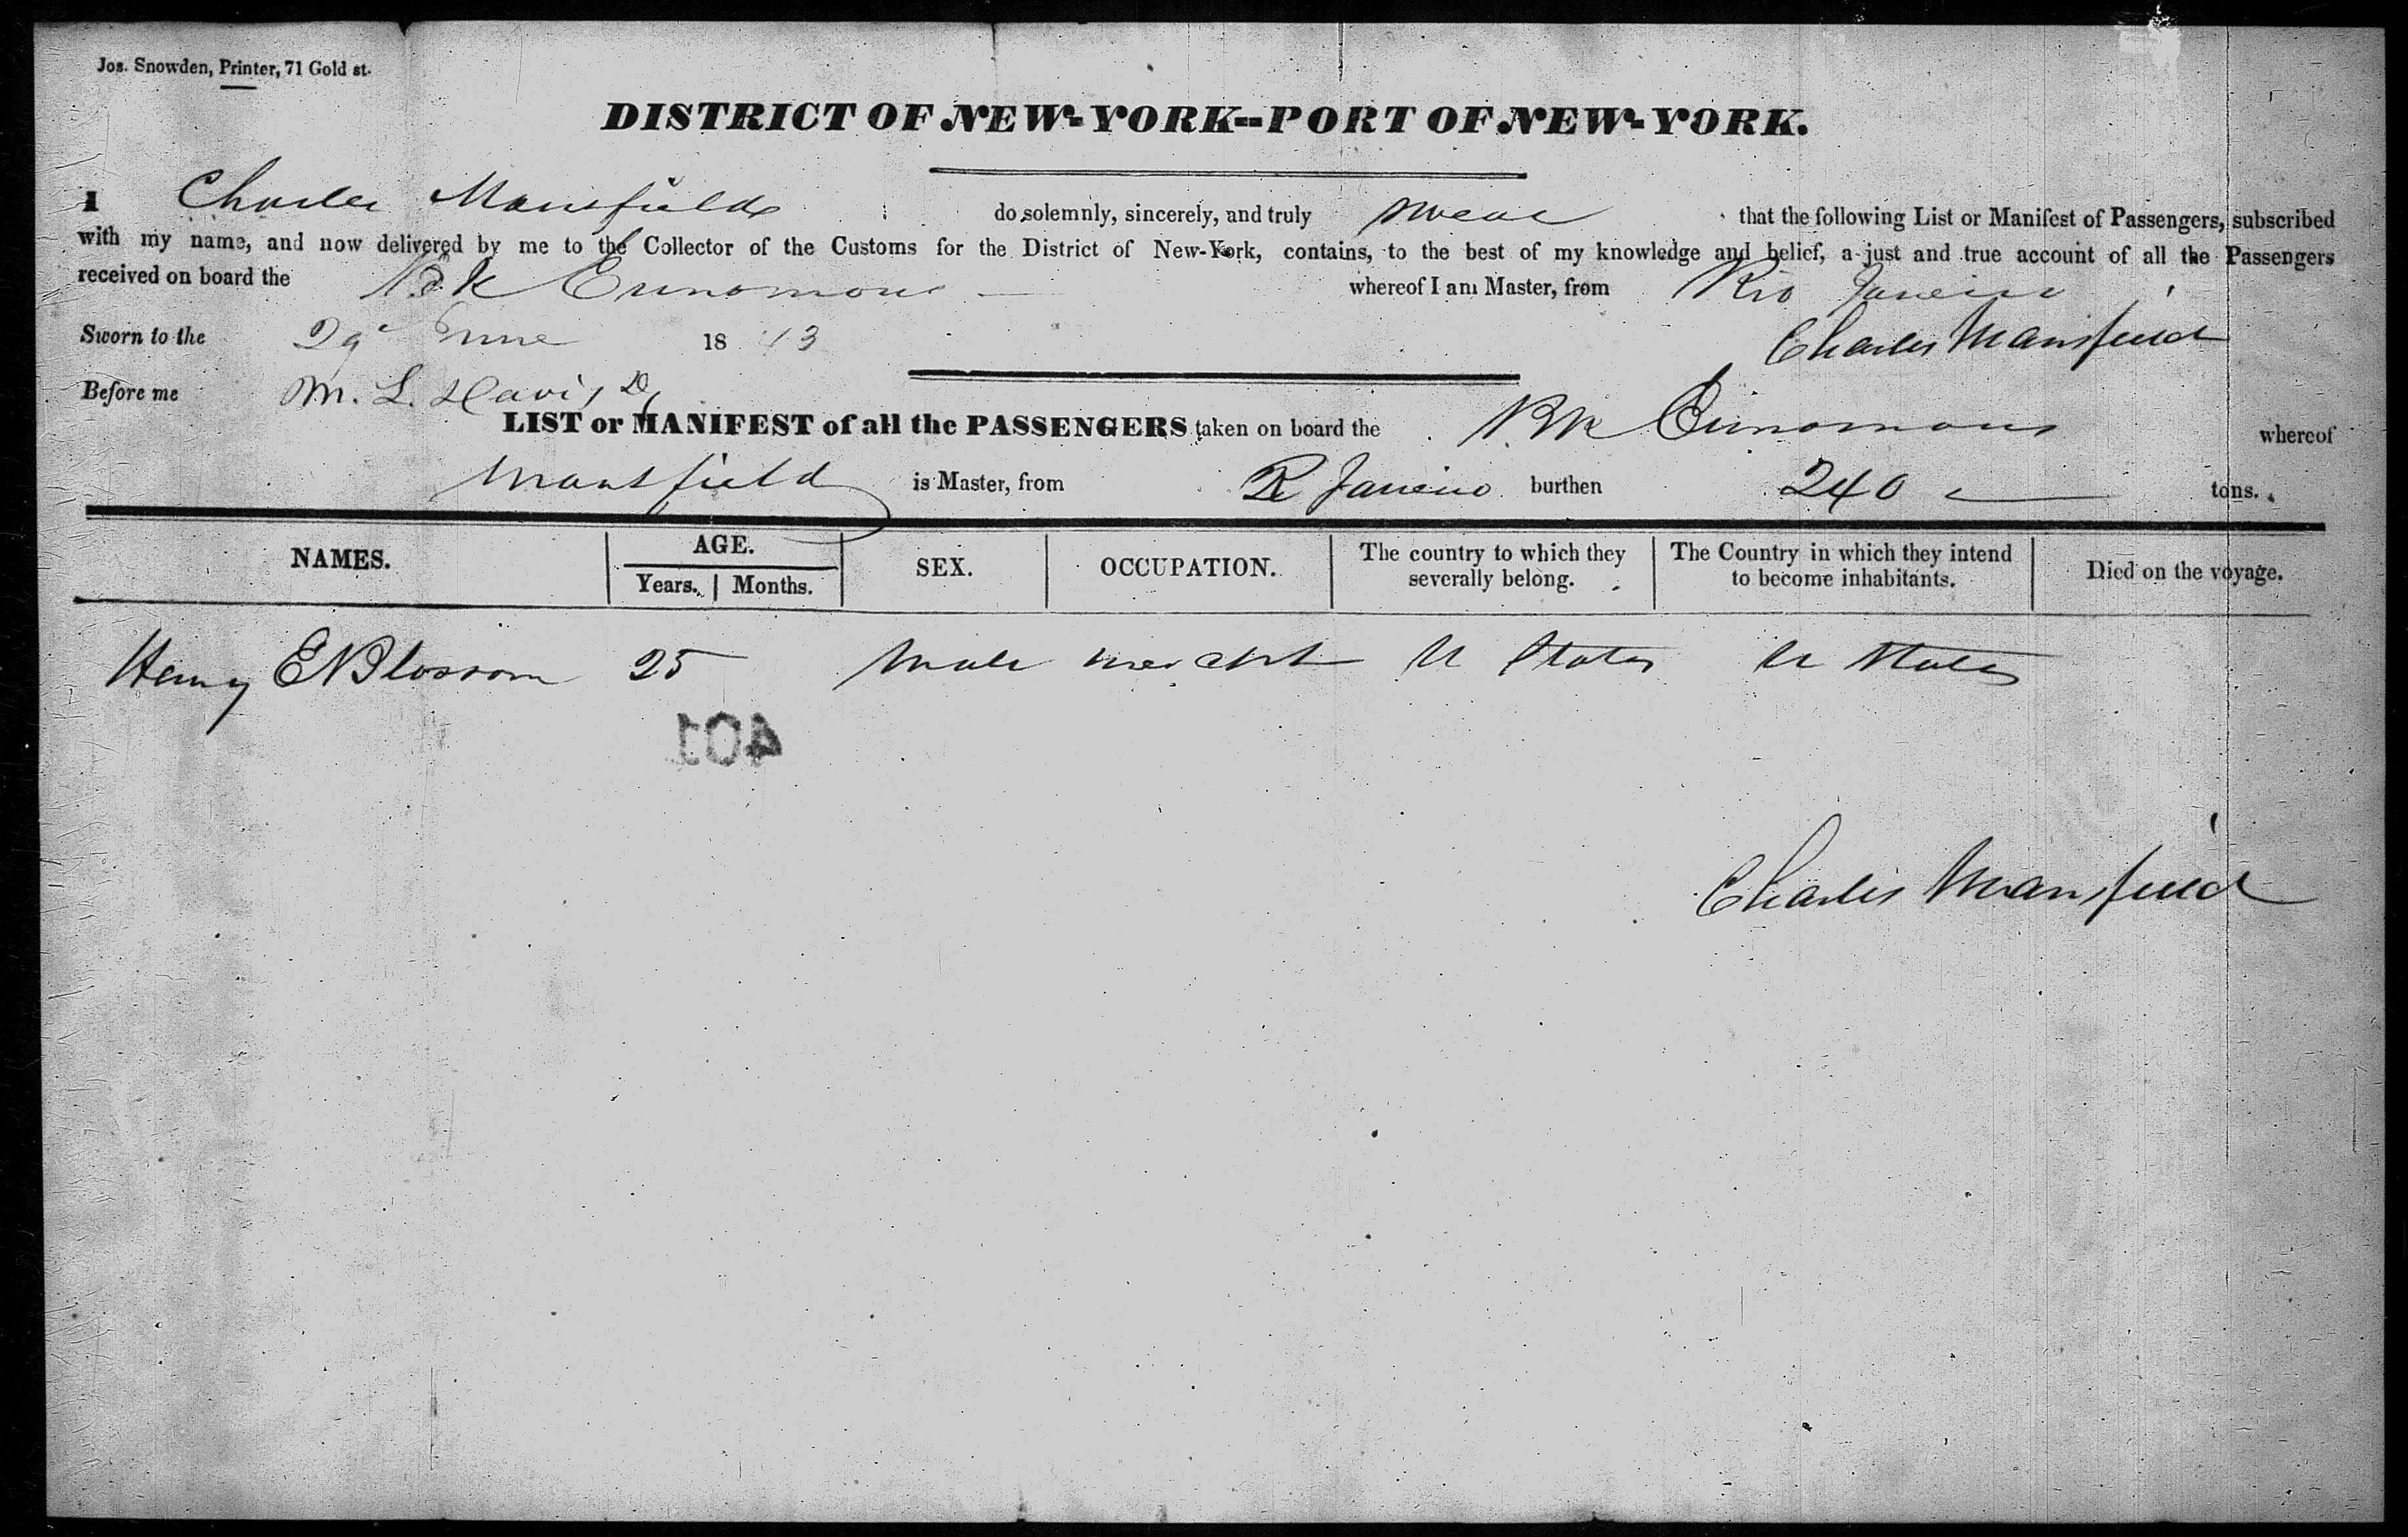 Jos. Snowden, Printer, 71 Gold st.
DISTRICT OF NEW-YORK--PORT OF NEW-YORK.
I Charles Mansfield do solemnly, sincerely, and truly swear that the following List or Manifest of Passengers, subscribed
with my name, and now delivered by me to the Collector of the Customs for the District of New-York, contains, to the best of my knowledge and belief, a just and true account of all the Passengers
received on board the Bk Eunomous whereof I am Master, from Rio Janeiro
Sworn to the 29 June 1843 Charles Mansfield
Before me M. L. Davis
LIST or MANIFEST of all the PASSENGERS taken on board the Bk Eunomous whereof
Mansfield is Master, from R Janeiro burthen 240 tons.
NAMES. AGE. SEX. OCCUPATION. The country to which they severally belong. The Country in which they intend to become inhabitants. Died on the voyage.
Years. Months.
Henry E Blossom 25 Male Mercht U States U States
401
Charles Mansfield